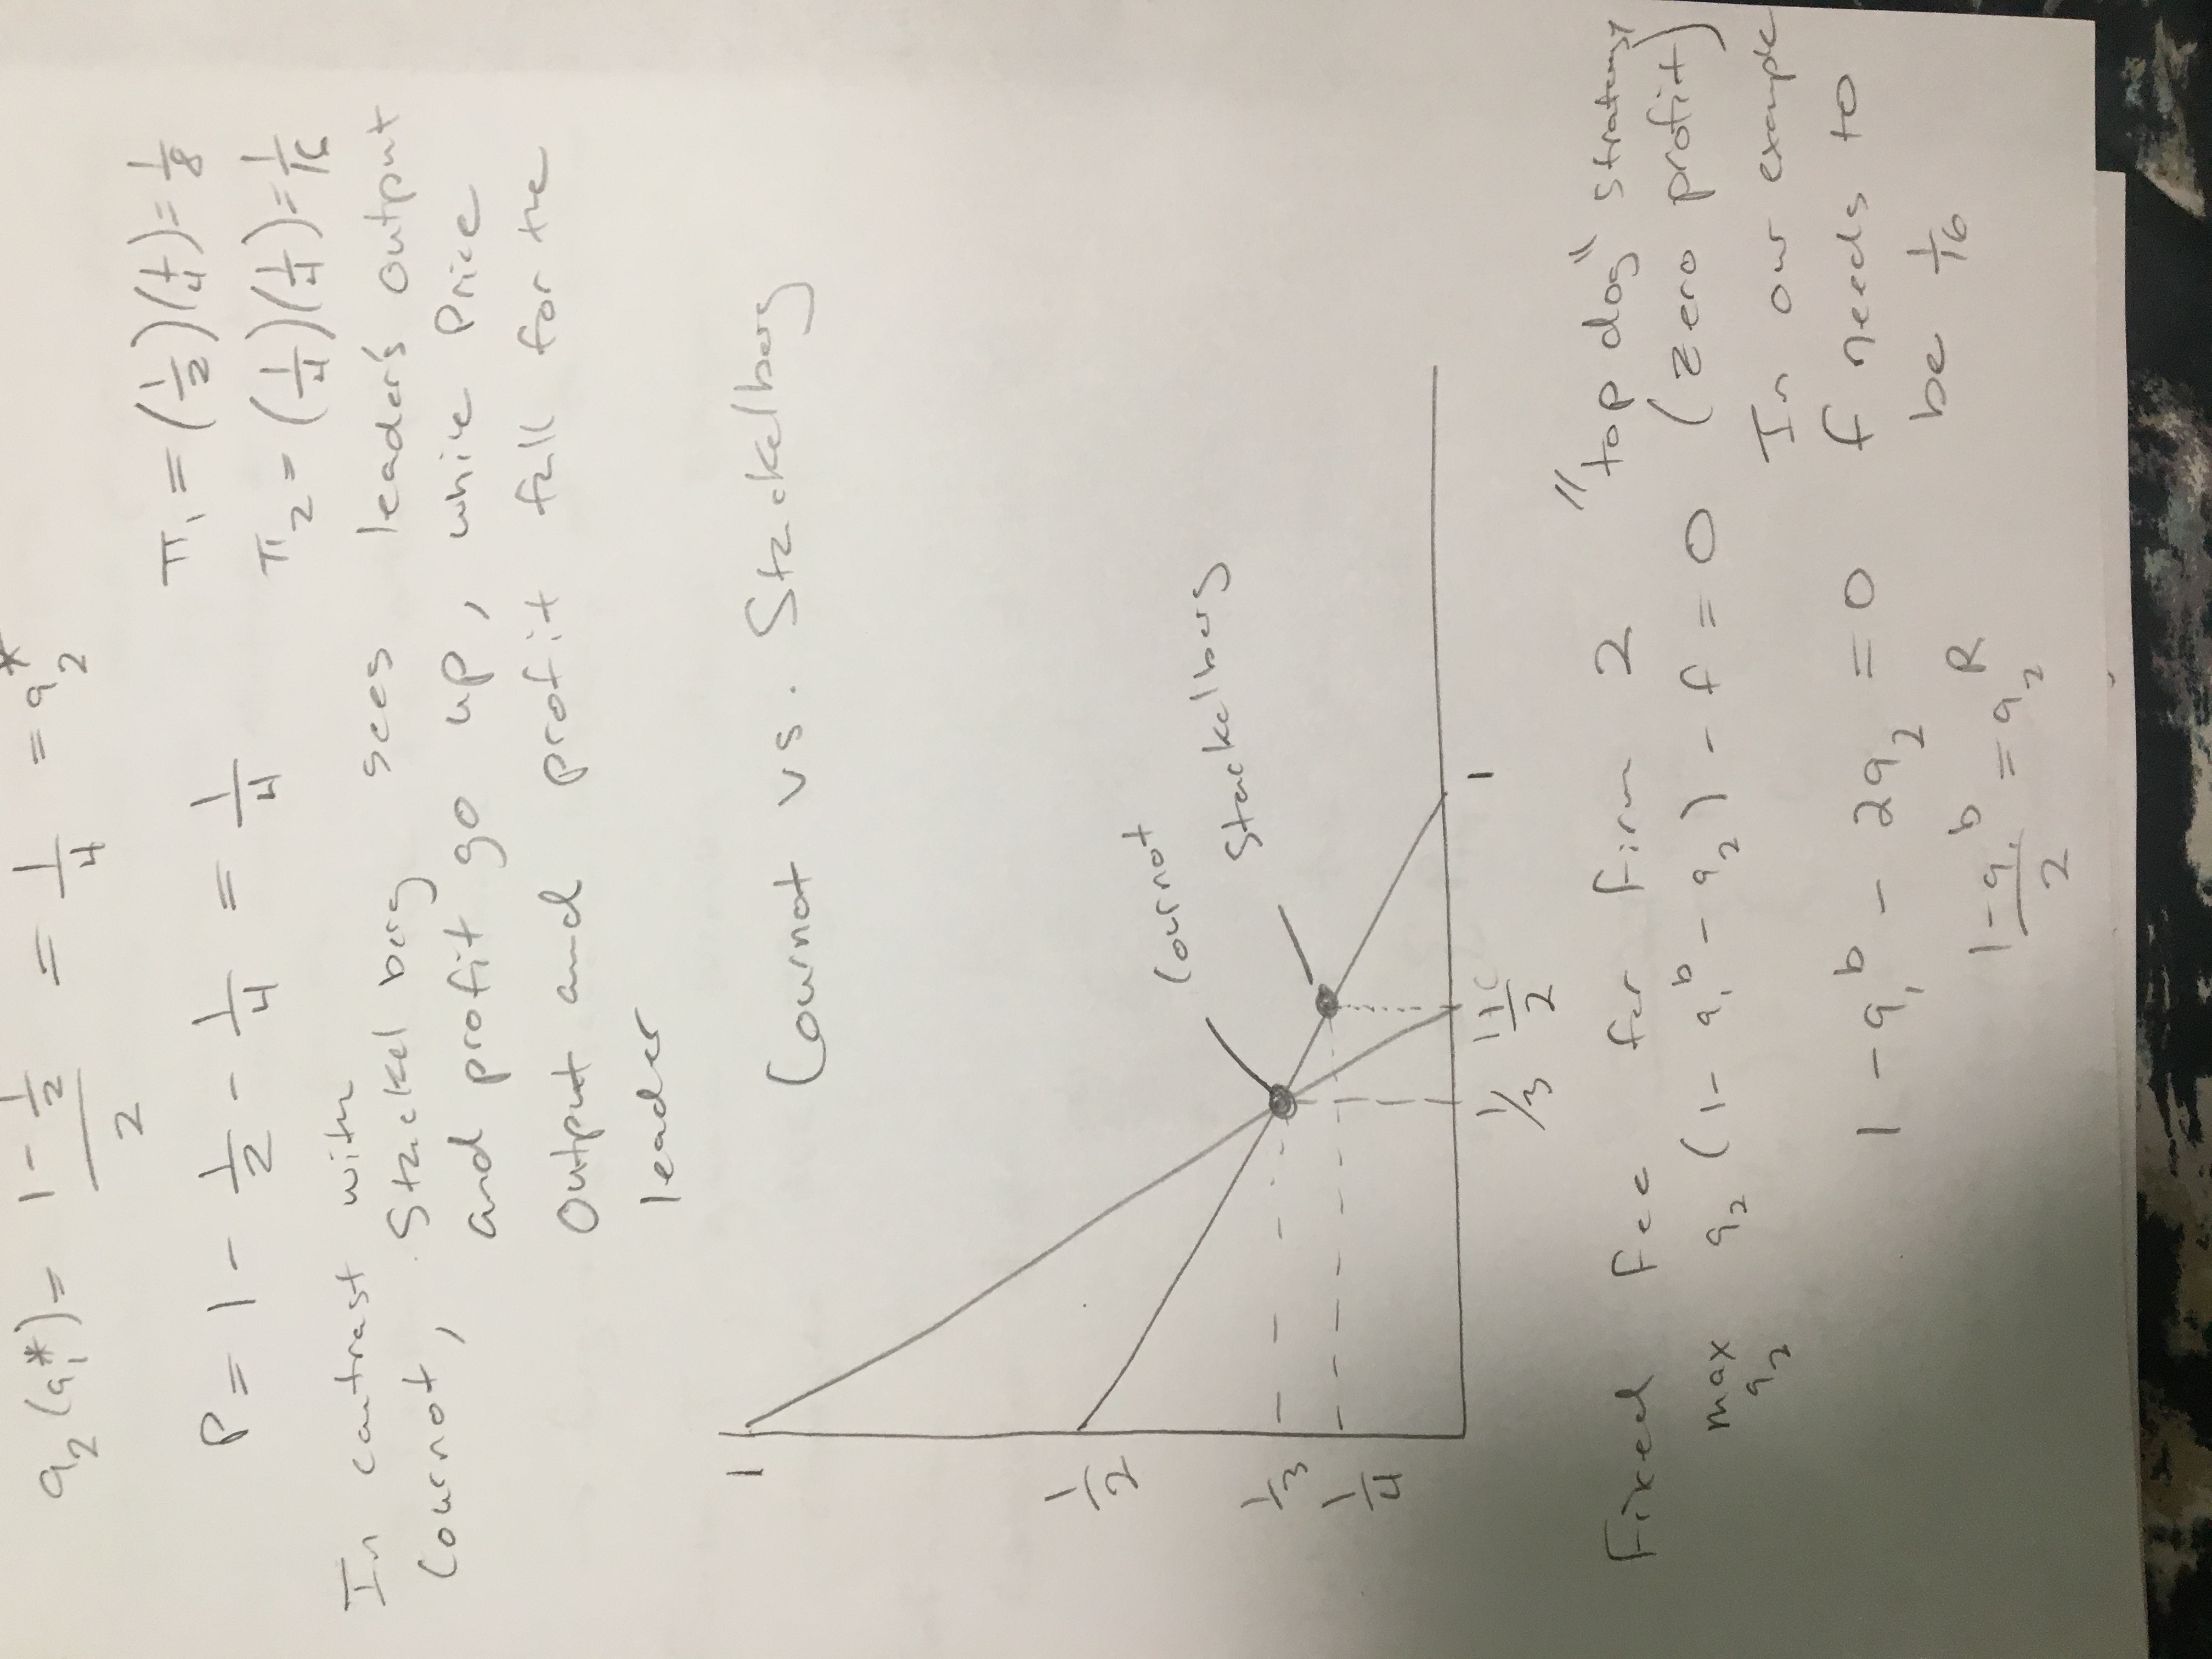 q₂(q₁*) = (1 - 1/2)/2 = 1/4 = q₂*
π₁ = (1/2)(1/4) = 1/8
P = 1 - 1/2 - 1/4 = 1/4
π₂ = (1/4)(1/4) = 1/16
In contrast with
Cournot, Stackelberg sees leader's output
and profit go up, while Price
Output and profit fall for the
leader
1
Cournot vs. Stackelberg
1/2
Cournot
Stackelberg
1/3
1/4
1/3 /2 1
Fixed fee for firm 2 "top dog" strategy
max q₂ q₂(1 - q₁ᵇ - q₂) - f = 0 (zero profit)
In our example
1 - q₁ᵇ - 2q₂ = 0 f needs to
be 1/16
(1 - q₁ᵇ)/2 = q₂ᴿ